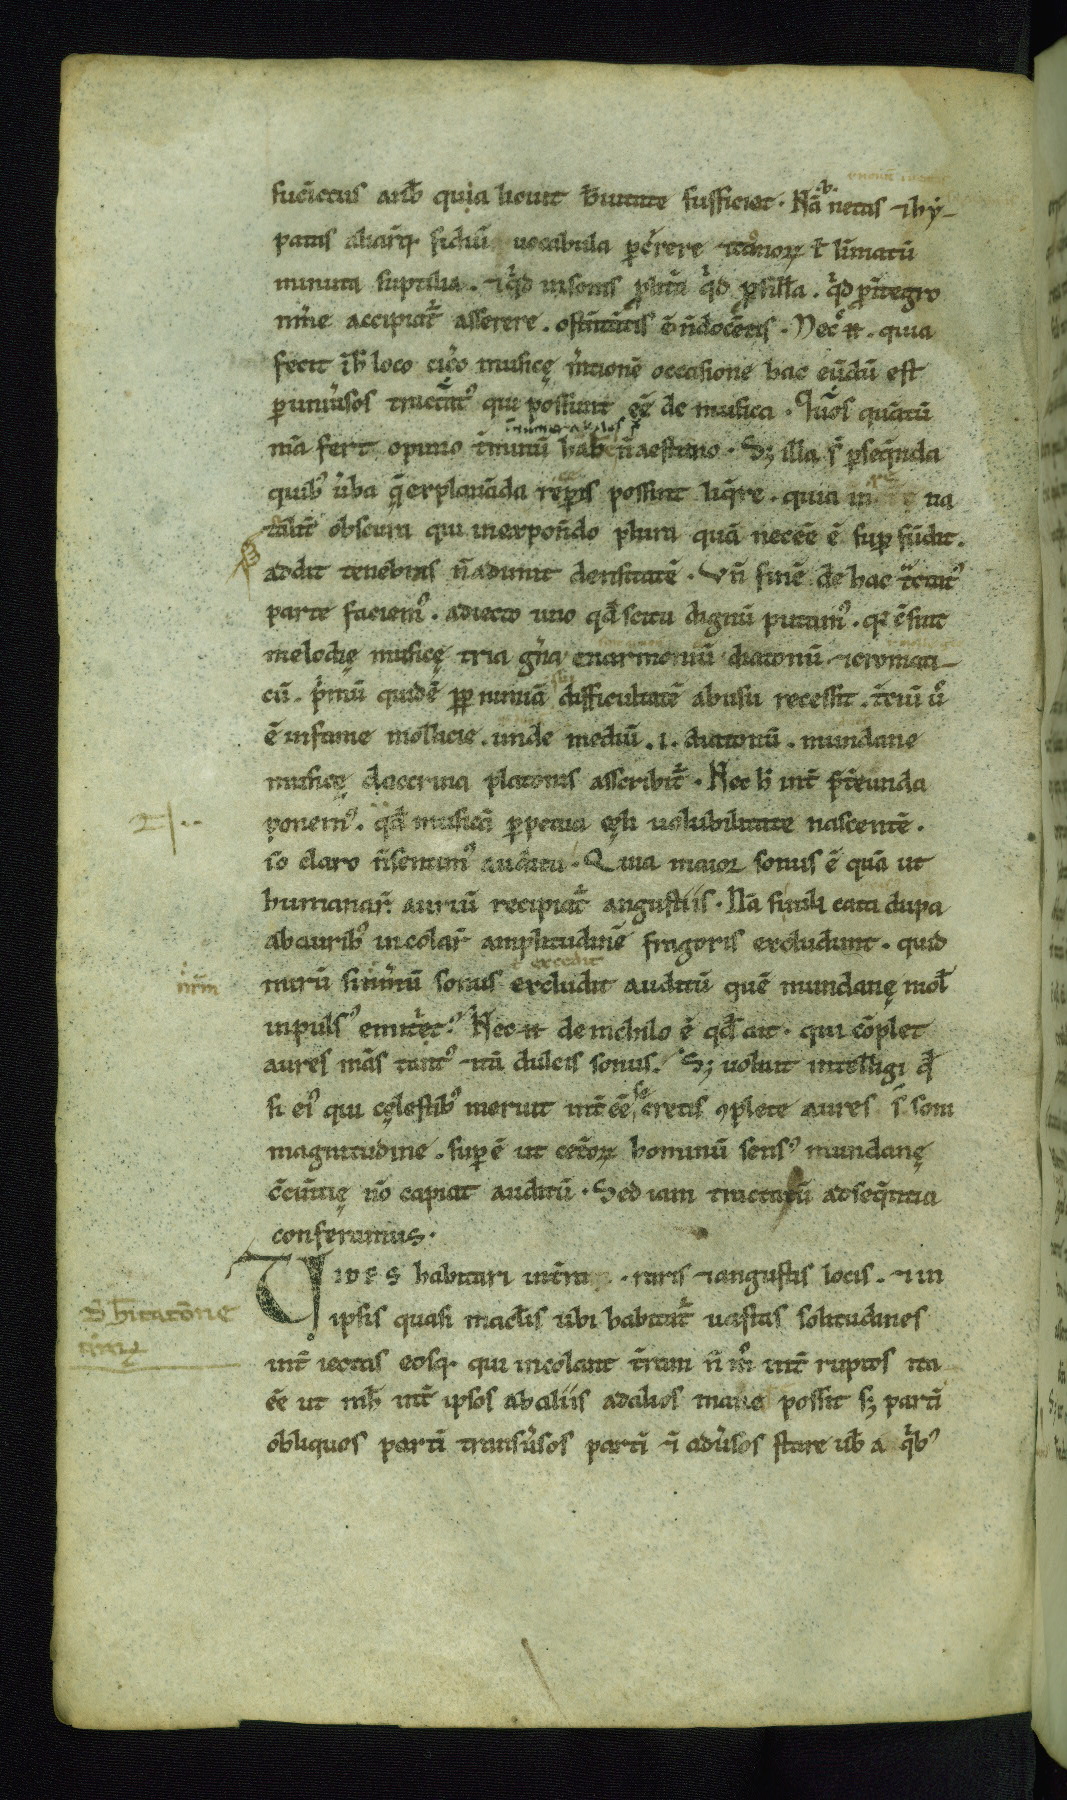 sucīctus anb̄ quia houit b̄uitate sufficiet · Nā netas ⁊ hẏ-
patas aliarūq; fidiū uocabula ꝑcrrere ⁊ tonoꝝ ł līmatū
minuta suptilia . ⁊ qⁱd in sonis ꝓ litt̄a qⁱd ꝓ sillā . qⁱd ꝓ ītegro
nōīne accipiat᷑ asserere . ostn̄tātis ē n̄ docētis · Nec .n̄. quia
fecit ī h̄ loco cic̄o musicę m̄tionē occasione hac eūdū est
ꝑ uniūsos tractat᷒ qui possunt eē de musica · Quos quātū
m̄a fert opinio t̄minū hab̄ n̄ aestimo · Sꝫ illa s̄ ꝑseq̄nda
quib᷒ ūba q̄ explanāda reꝑis possint liq̄re · quia in re na
tal̄it obscura qui in expon̄do plura quā necēē ē sup fūdit .
addit tenebras n̄ adimit densitatē · Vn̄ finē de hac t̄ctat᷒
parte faciem᷒ . adiecto uno qđ scitu dignū putam᷒ . qꝫ cū sint
melodię musicę tria gn̄a enarmoniū diatonū ⁊ cromati-
cū . p̄mū quidē ꝓp nimiā sui difficultatē abusu recessit . t̄ciū ū
ē infame mollicie . unde mediū . i . diatonū . mundane
musicę doctrina platonis asscribit᷑ · Nec h̄ int̄ p̄tereunda
ponem᷒ . qđ musicā ꝑpetua cęli uolubilitate nascentē .
iō claro n̄ sentim᷒ auditu · Quia maior sonus ē quā ut
humanar̄ auriū recipiat᷑ angustiis · Nā si nili catadupa
ab aurib᷒ incolar̄ amplitudinē fragoris excludunt . quid
mirū si nr̄m̄ū sonus excludit auditū quē mundanę mol̄
inpuls᷒ emittet᷒ · Nec .n̄. de nichilo ē qđ ait · qui cōplet
aures m̄as tant᷒ ⁊ tā dulcis sonus . Sꝫ uoluit intelligi qđ
si ei᷒ qui cęlestib᷒ meruit int̄ eē secretis cōplete aures s̄ soni
magnitudine . supē ut cet̄oꝝ hominū sens᷒ mundanę
c̄cin̄tię nō capiat auditū · Sed iam tractatū ad seq̄ntia
conferamus .
VIDES habitari in t̄ra . raris ⁊ angustis locis . ⁊ in
ipsis quasi maclis ubi habitat᷑ uastas solitudines
int̄ iectas eosq; qui incolant t̄ram n̄ m̄ int̄ ruptos ita
ēē ut nih̄ int̄ ipsos ab aliis ad alios mana possit sꝫ partī
obliquos partī transūsos partī ⁊ī adūsos stare ub̄ a qⁱb᷒